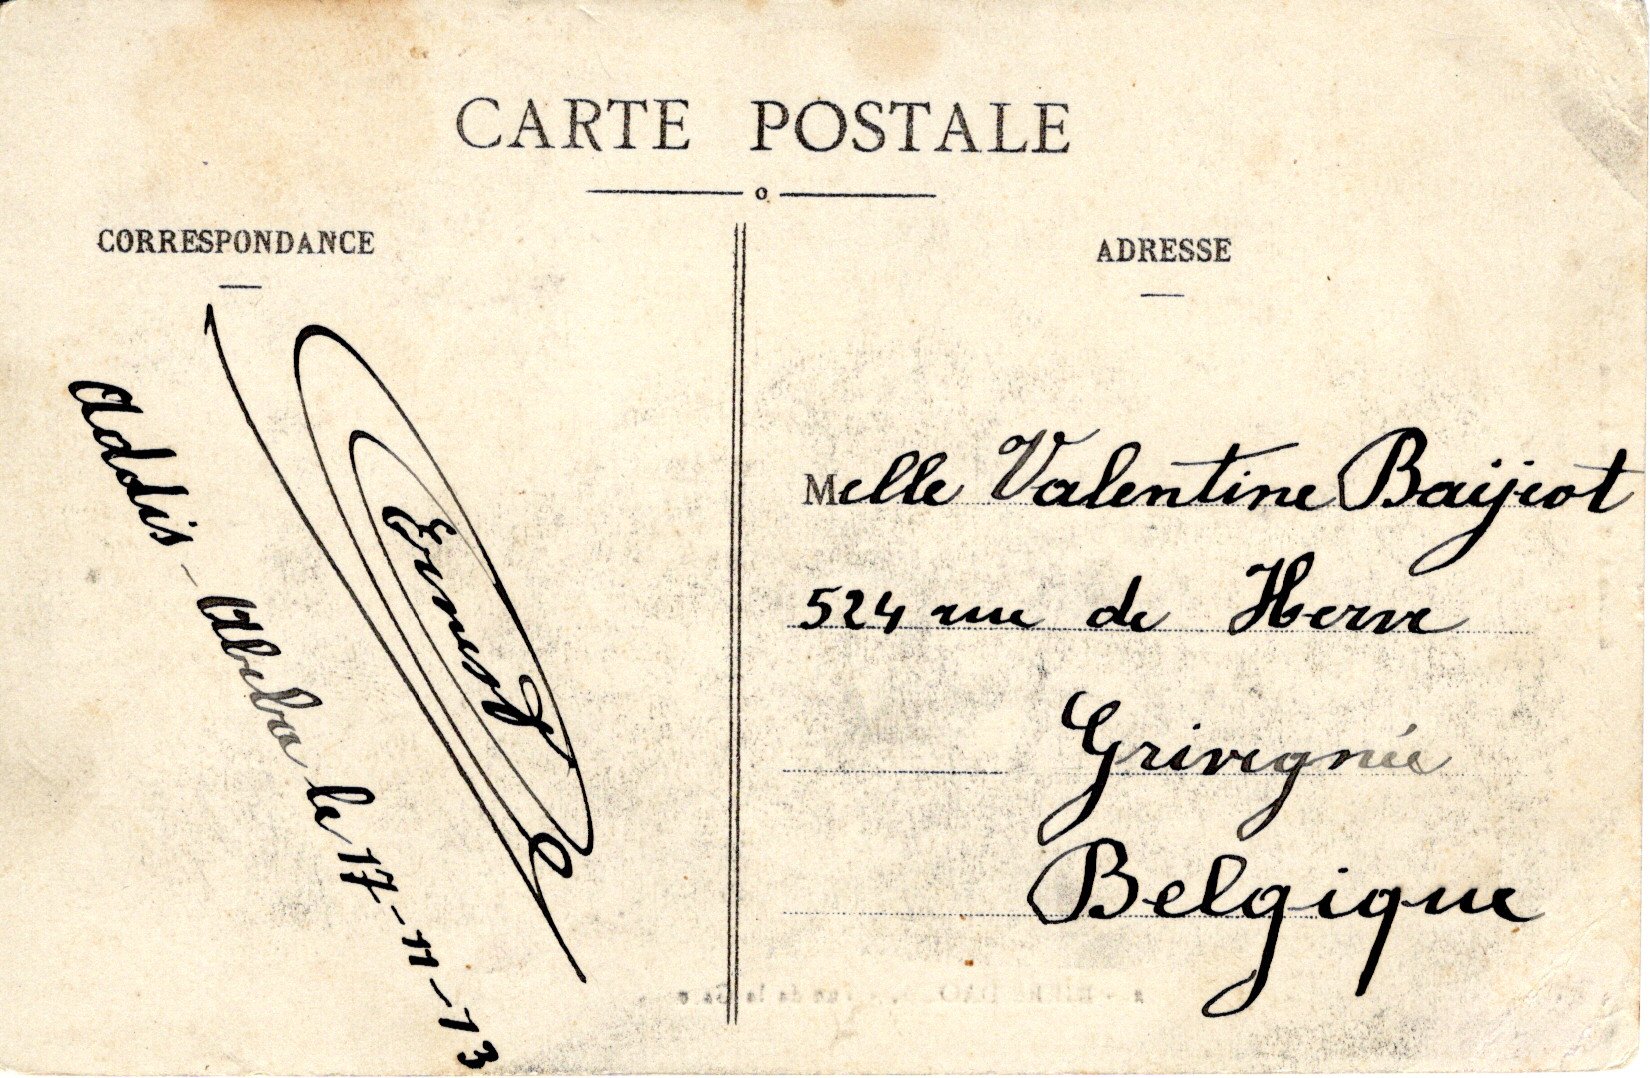 CARTE POSTALE
CORRESPONDANCE
Addis-Abeba le 17-11-13
Ernest
ADRESSE
Melle Valentine Baijiot
524 rue de Herve
Grivegnée
Belgique